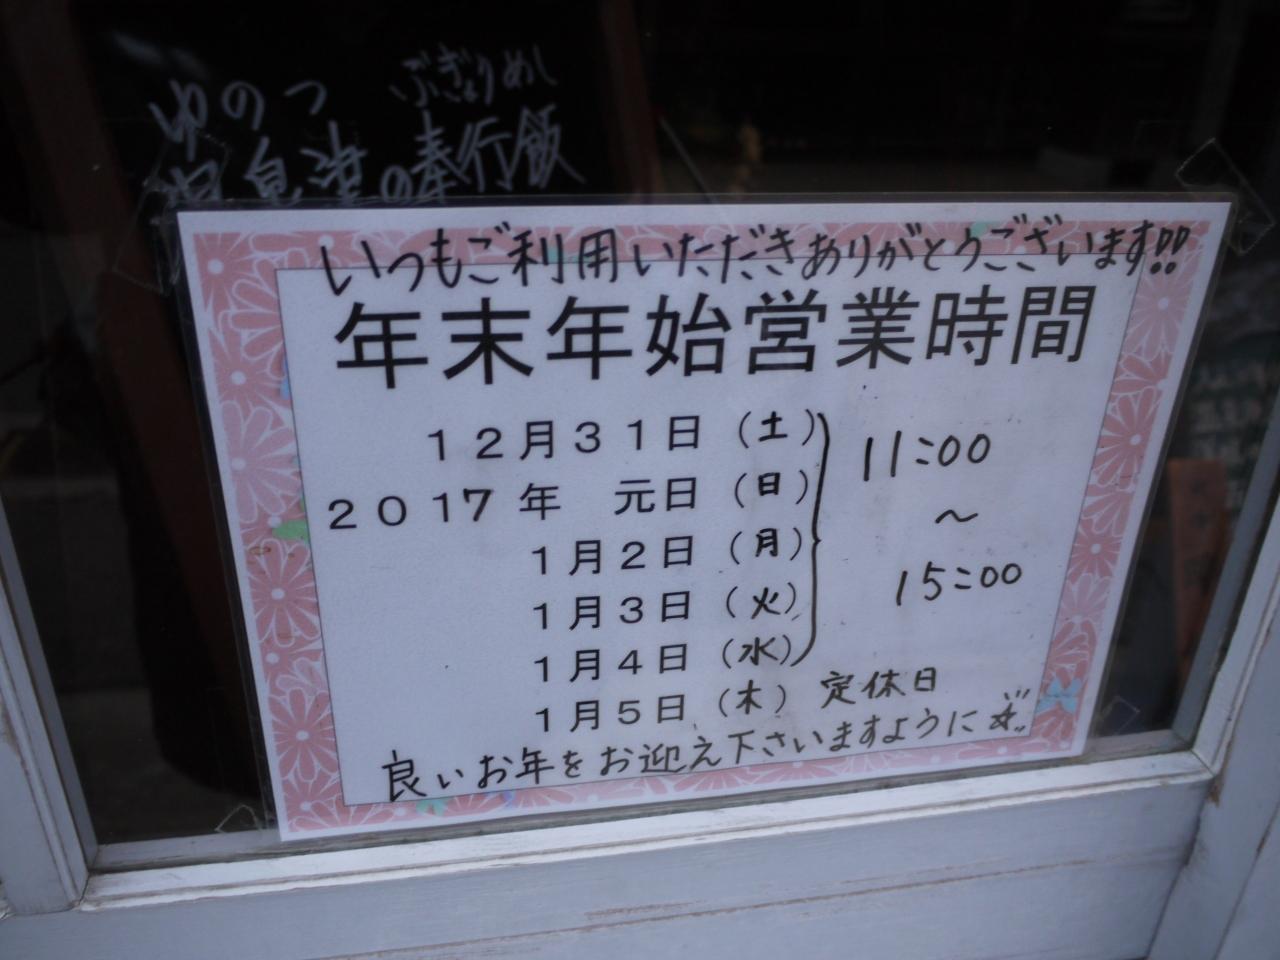 ゆのつ ぶぎょうめし
温泉津の奉行飯
いつもご利用いただきありがとうございます!!
年末年始営業時間
12月31日(土)
2017年 元日(日)
1月2日(月)
1月3日(火)
1月4日(水)
11:00
～
15:00
1月5日(木) 定休日
良いお年をお迎え下さいますように☆